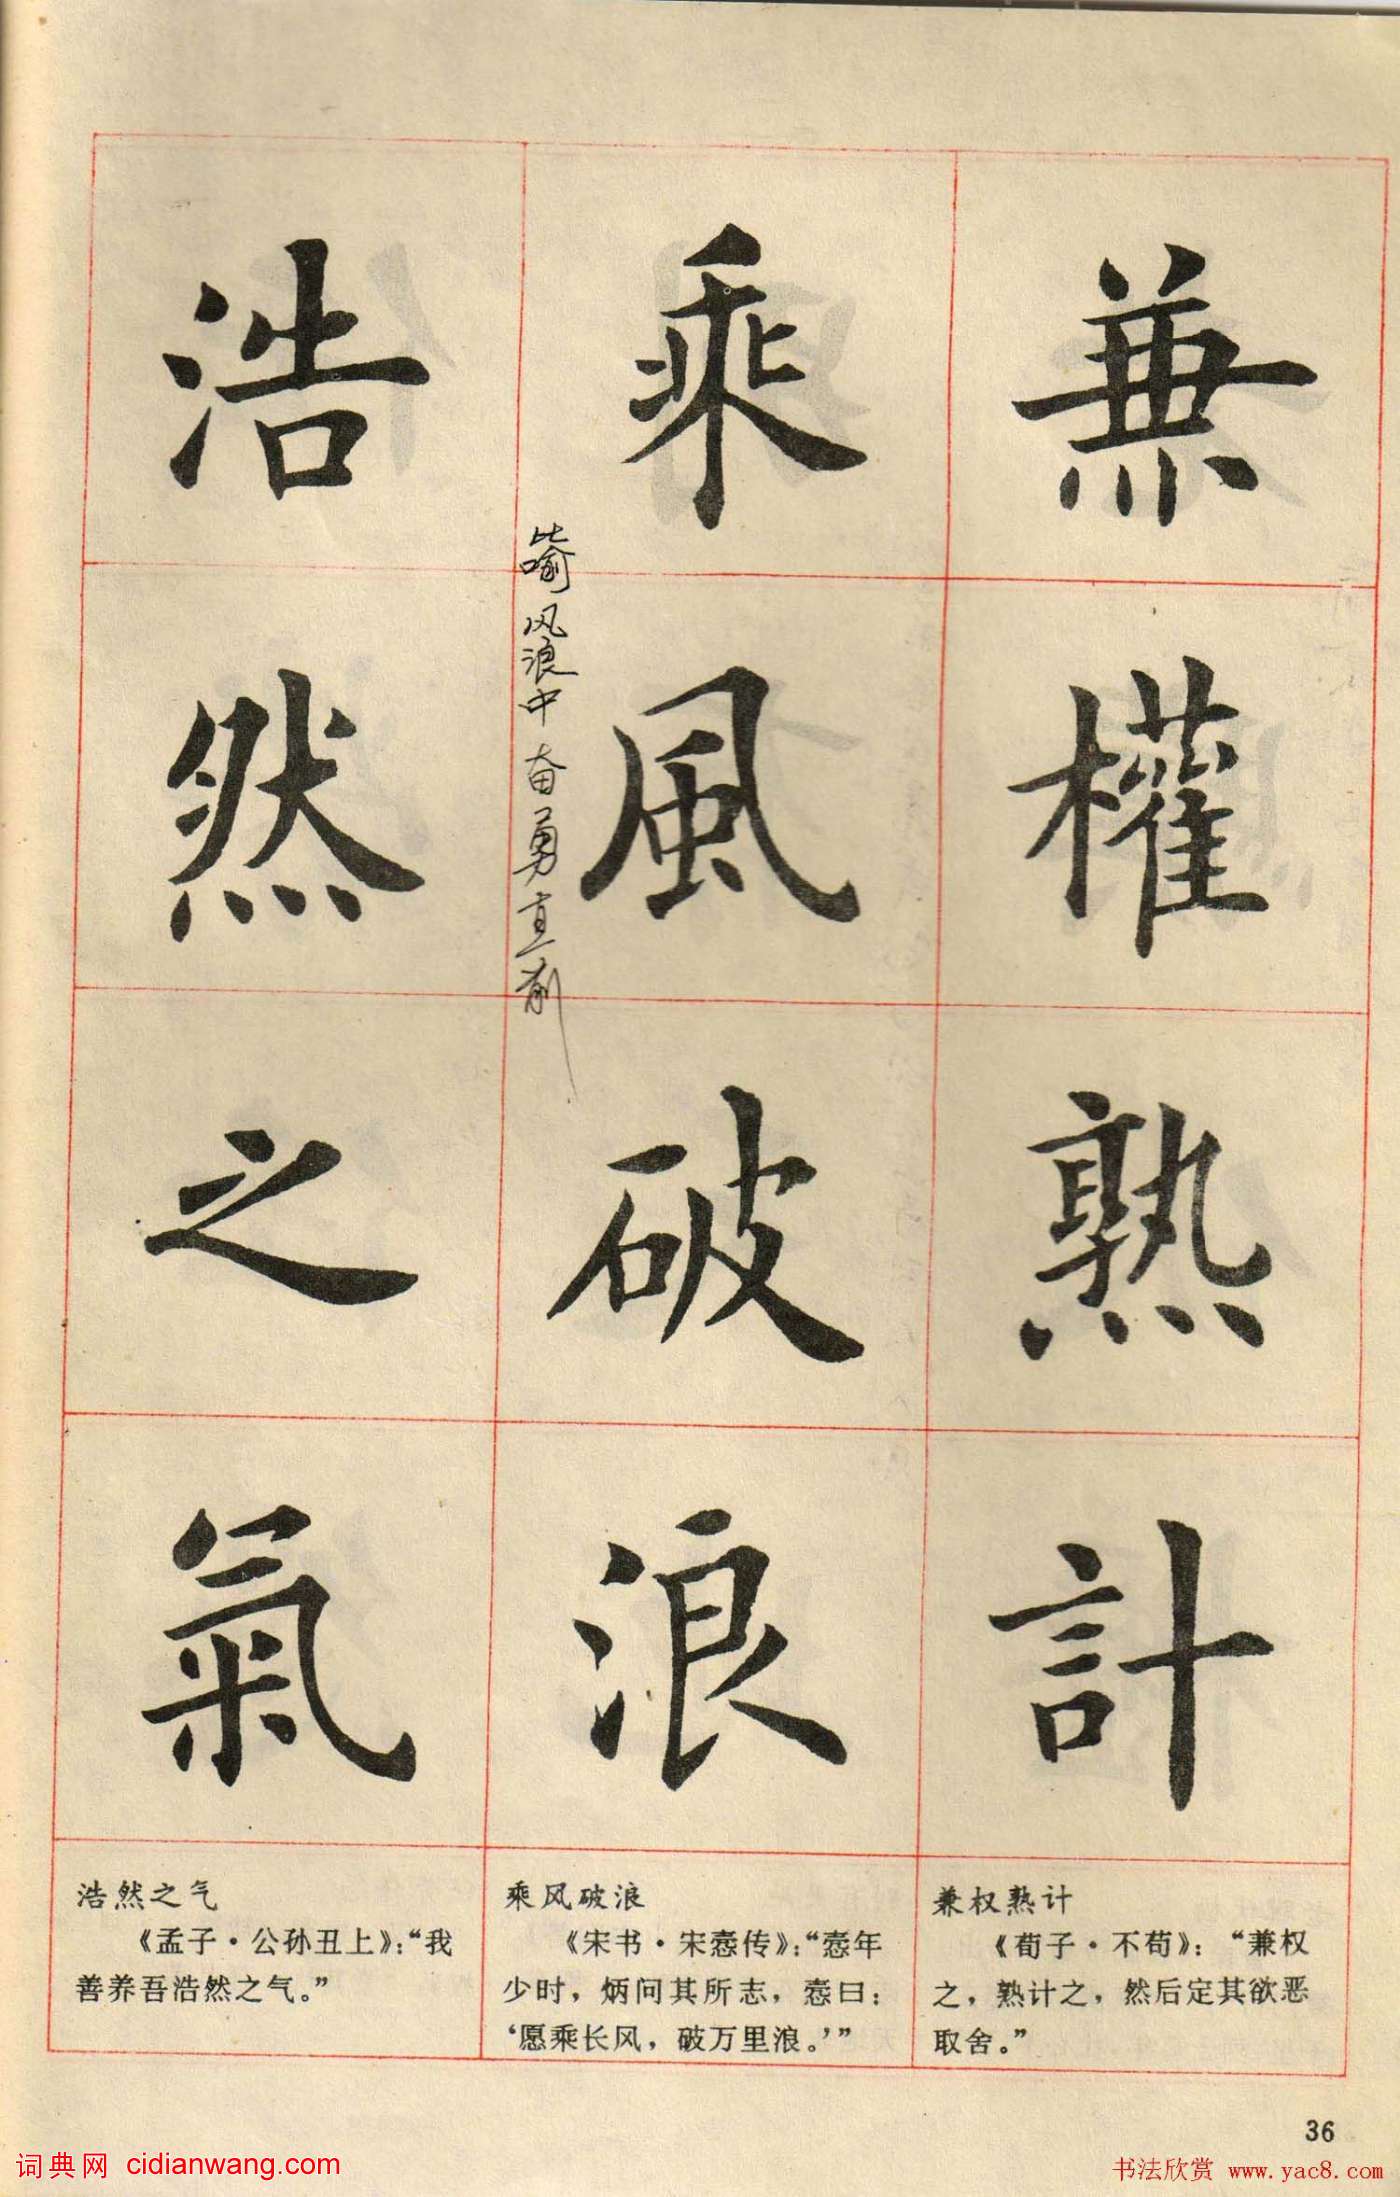 兼權熟計
乘風破浪
比喻风浪中奋勇直前
浩然之氣
兼权熟计
《荀子·不苟》：“兼权
之，熟计之，然后定其欲恶
取舍。”
乘风破浪
《宋书·宋悫传》：“悫年
少时，炳问其所志，悫曰：
‘愿乘长风，破万里浪。’”
浩然之气
《孟子·公孙丑上》：“我
善养吾浩然之气。”
36
词典网 cidianwang.com
书法欣赏 www.yac8.com